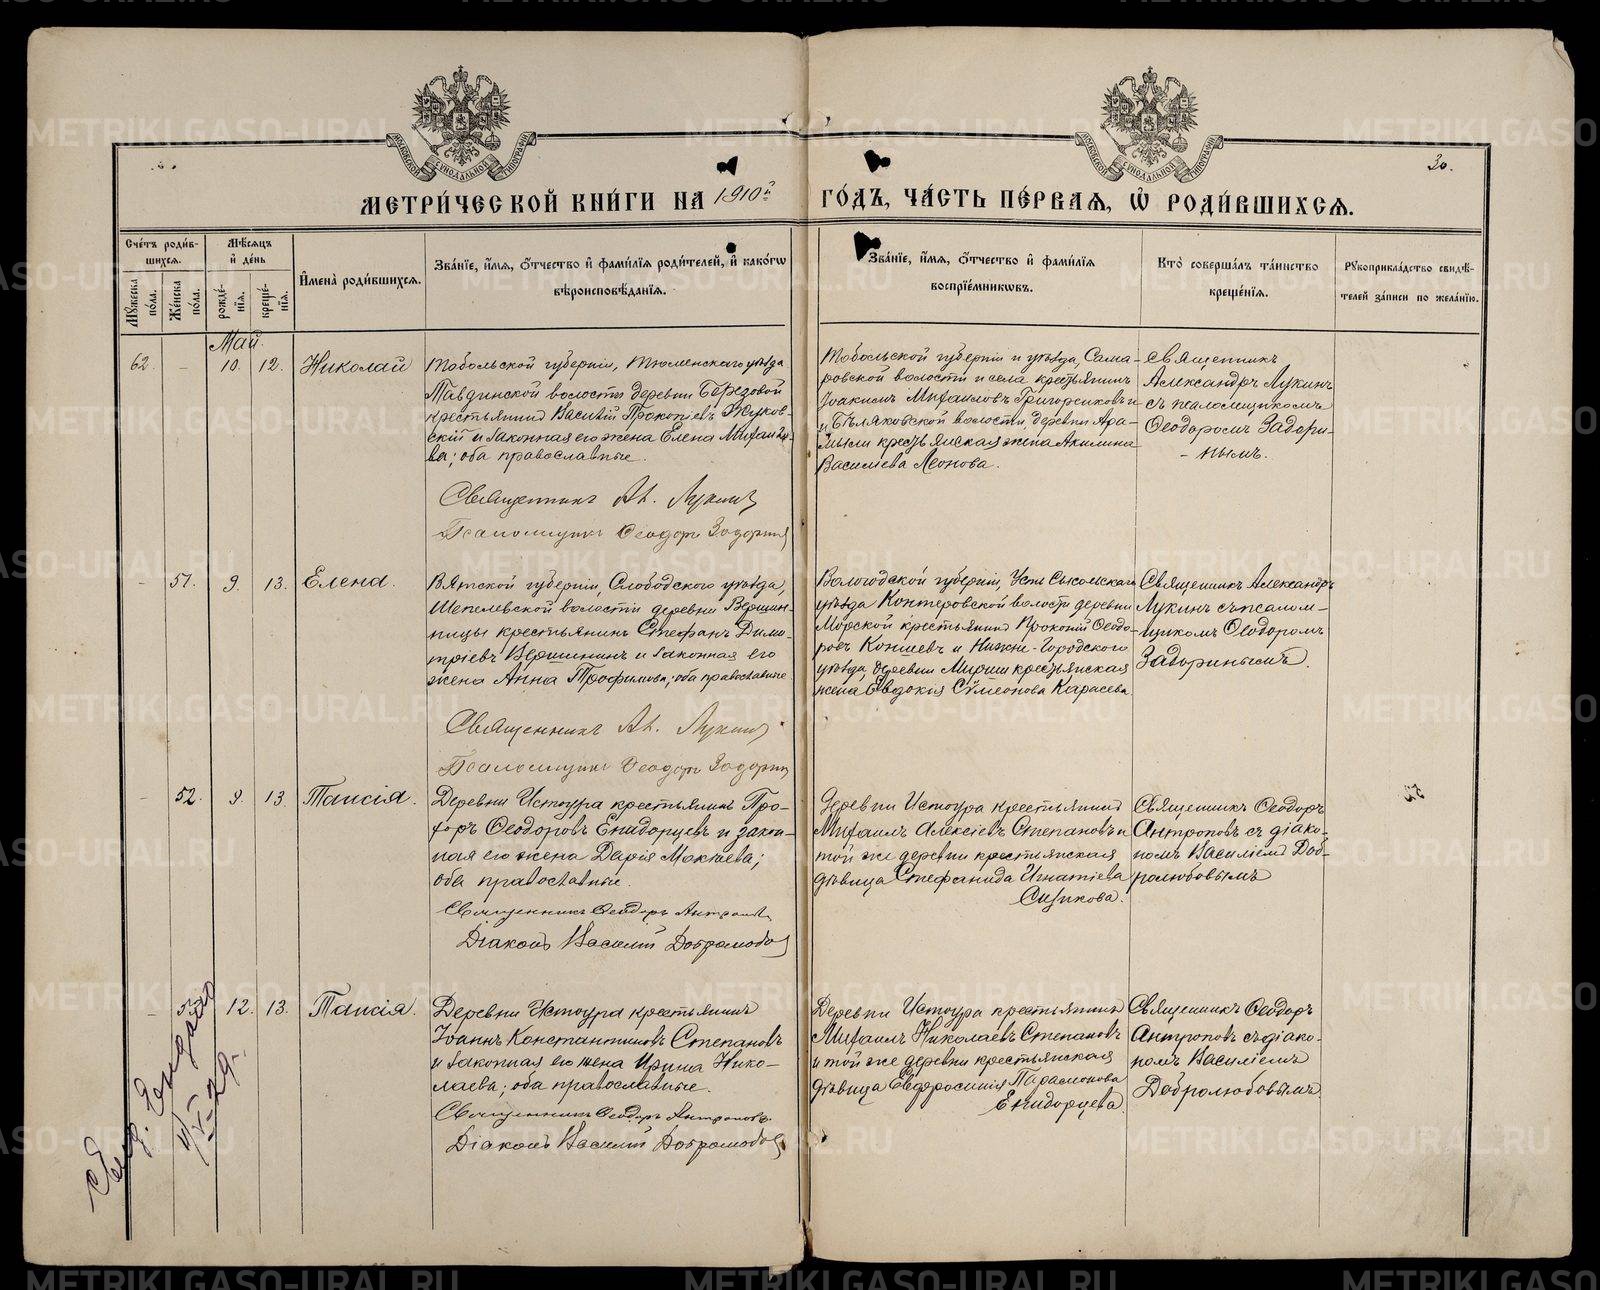 30.
МЕТРИ́ЧЕСКОЙ КНИ́ГИ НА 1910й ГО́ДЪ, ЧА́СТЬ ПЕ́РВАѦ, Ѽ РОДИ́ВШИХСѦ.
МОСКОВСКОЙ СѴНОДАЛЬНОЙ ТИПОГРАФІИ
МОСКОВСКОЙ СѴНОДАЛЬНОЙ ТИПОГРАФІИ
Сче́тъ роди́в-
шихсѧ.
Мꙋ́жеска по́ла.
Же́нска по́ла.
Мѣ́сѧцъ
и҆ де́нь
рожде́-
нїѧ.
креще́-
нїѧ.
И҆мена̀ роди́вшихсѧ.
Зва́нїе, и҆́мѧ, ѻ҆́тчество и҆ фами́лїѧ роди́телей, и҆ како́гѡ
вѣроисповѣ́данїѧ.
Зва́нїе, и҆́мѧ, ѻ҆́тчество и҆ фами́лїѧ
воспрїе́мникѡвъ.
Кто̀ соверша́лъ та́инство
креще́нїѧ.
Рꙋкоприкла́дство свидѣ́-
телей за́писи по жела́нїю.
Май.
62. - 10. 12. Николай
Тобольской губерніи, Тюменскаго уѣзда
Тавдинской волости деревни Березовой
крестьянинъ Василій Прокопіевъ Жуков-
скій и законная его жена Елена Михаило-
ва; оба православные.
Священникъ Ал. Лукинъ
Псаломщикъ Ѳеодоръ Задоринъ
Тобольской губерніи и уѣзда, Сама-
ровской волости и села крестьянинъ
Іоакимъ Михаиловъ Григоренковъ и
Бѣляковской волости, деревни Ара-
мысли крестьянская жена Акилина
Василіева Леонова.
Священникъ
Александръ Лукинъ
съ псаломщикомъ
Ѳеодоромъ Задори-
нымъ.
- 51. 9. 13. Елена.
Вятской губерніи, Слободского уѣзда,
Шепелевской волости деревни Вершин-
ницы крестьянинъ Стефанъ Дими-
тріевъ Вершининъ и законная его
жена Анна Трофимова; оба православные
Священникъ Ал. Лукинъ
Псаломщикъ Ѳеодоръ Задоринъ
Вологодской губерніи, Усть Сысольскаго
уѣзда Контеровской волости деревни
Морской крестьянинъ Прокопій Ѳеодо-
ровъ Коншевъ и Нижне-Городского
уѣзда, деревни крестьянская
жена Евдокія Сѵмеонова Карасева.
Священникъ Александръ
Лукинъ съ псалом-
щикомъ Ѳеодоромъ
Задоринымъ.
- 52. 9. 13. Таисія.
Деревни Истоура крестьянинъ Про-
хоръ Ѳеодоровъ Енидорцевъ и закон-
ная его жена Дарія Мокіева;
оба православные.
Священникъ Ѳеодоръ Антроповъ
Діаконъ Василій Добролюбовъ
Деревни Истоура крестьянинъ
Михаилъ Алексіевъ Степановъ и
той же деревни крестьянская
дѣвица Стефанида Игнатіева
Сизикова.
Священникъ Ѳеодоръ
Антроповъ съ діако-
номъ Василіемъ Доб-
ролюбовымъ
- 12. 13. Таисія.
Деревни Истоура крестьянинъ
Іоаннъ Константиновъ Степановъ
и законная его жена Ирина Нико-
лаева; оба православные.
Священникъ Ѳеодоръ Антроповъ
Діаконъ Василій Добролюбовъ
Деревни Истоура крестьянинъ
Михаилъ Николаевъ Степановъ
и той же деревни крестьянская
дѣвица Евфросинія Парамонова
Енидорцева.
Священникъ Ѳеодоръ
Антроповъ съ діако-
номъ Василіемъ
Добролюбовымъ.
METRIKI.GASO-URAL.RU